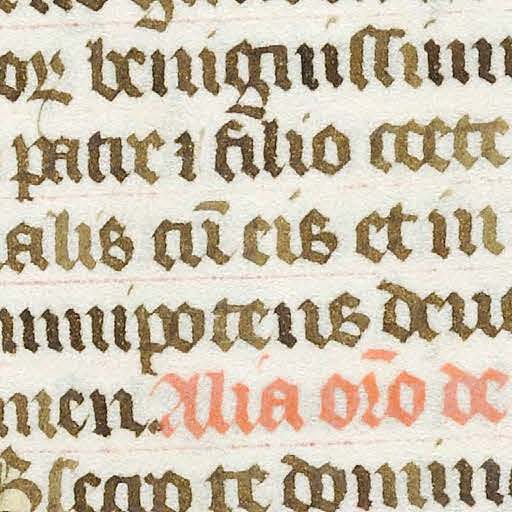 benignissim
patre ⁊ filio coete
alis cū eis et in
mnipotens deus
men. Alia oīo de
te domin